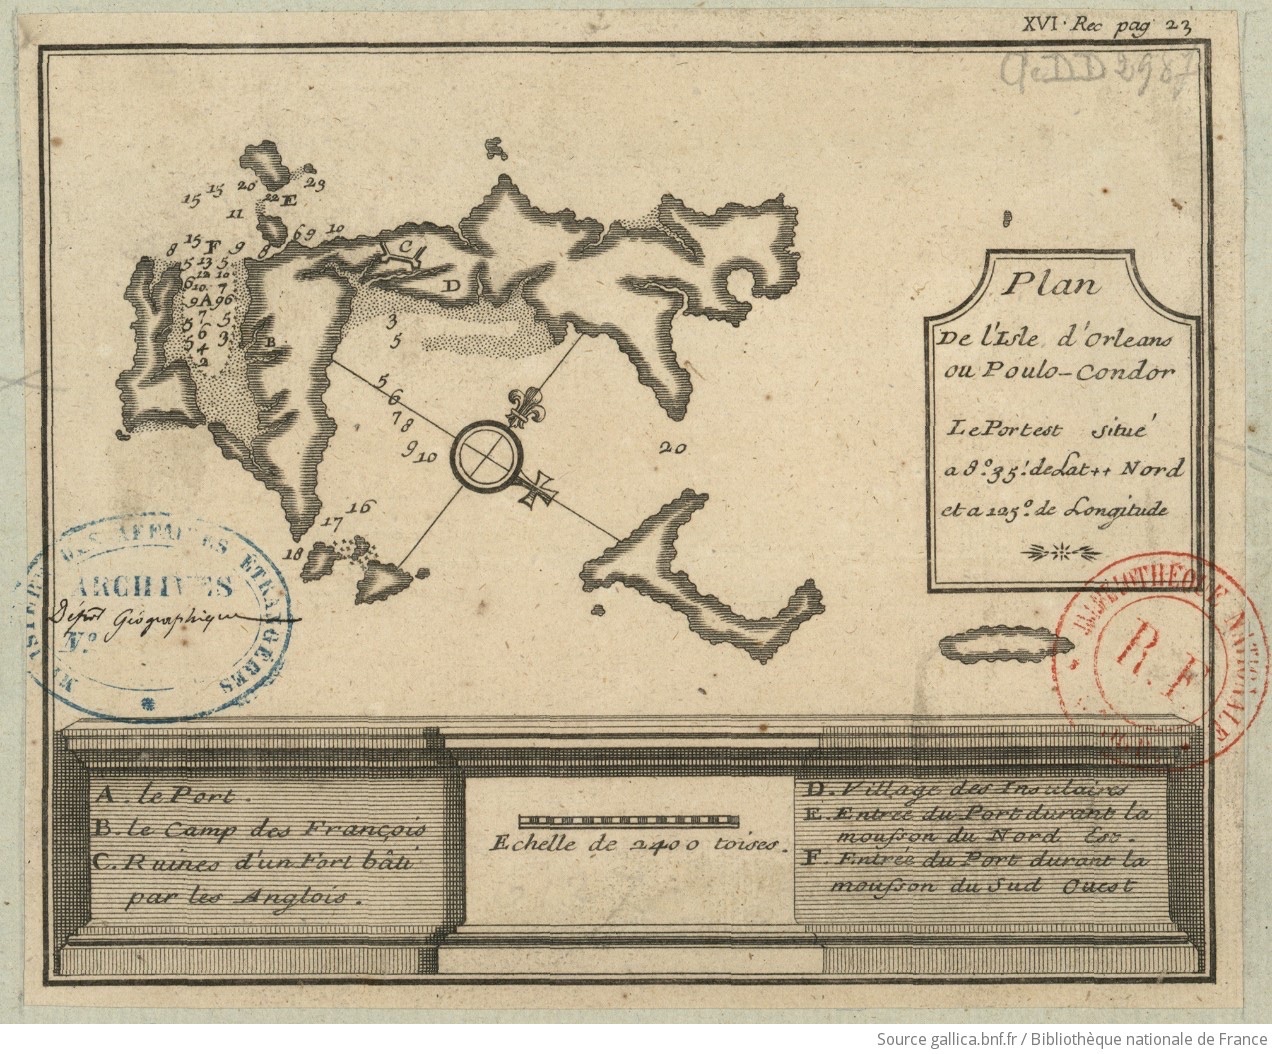 XVI. Rec pag 23
Ge DD 2987
23
20
15
15
22 E
11
15
F
9
8
8
6 9
10
5 13 5
12 10
6 10 7
9 A 9 6
7
5
5
6
3
5
4
2
B
C
D
3
5
5
6
7 8
9 10
20
16
17
18
Plan
De l'Isle d'Orleans
ou Poulo-Condor
Le Port est situé
a 8º. 35'. de Lat++ Nord
et a 125º. de Longitude
MINISTÈRE DES AFFAIRES ÉTRANGÈRES
ARCHIVES
Dépôt Géographique
Nº.
BIBLIOTHÈQUE NATIONALE
R.F
A. le Port.
B. le Camp des François
C. Ruines d'un Fort bâti
par les Anglois.
Echelle de 2400 toises.
D. Village des Insulaires
E. Entrée du Port durant la
mousson du Nord Est.
F. Entrée du Port durant la
mousson du Sud Ouest
Source gallica.bnf.fr / Bibliothèque nationale de France